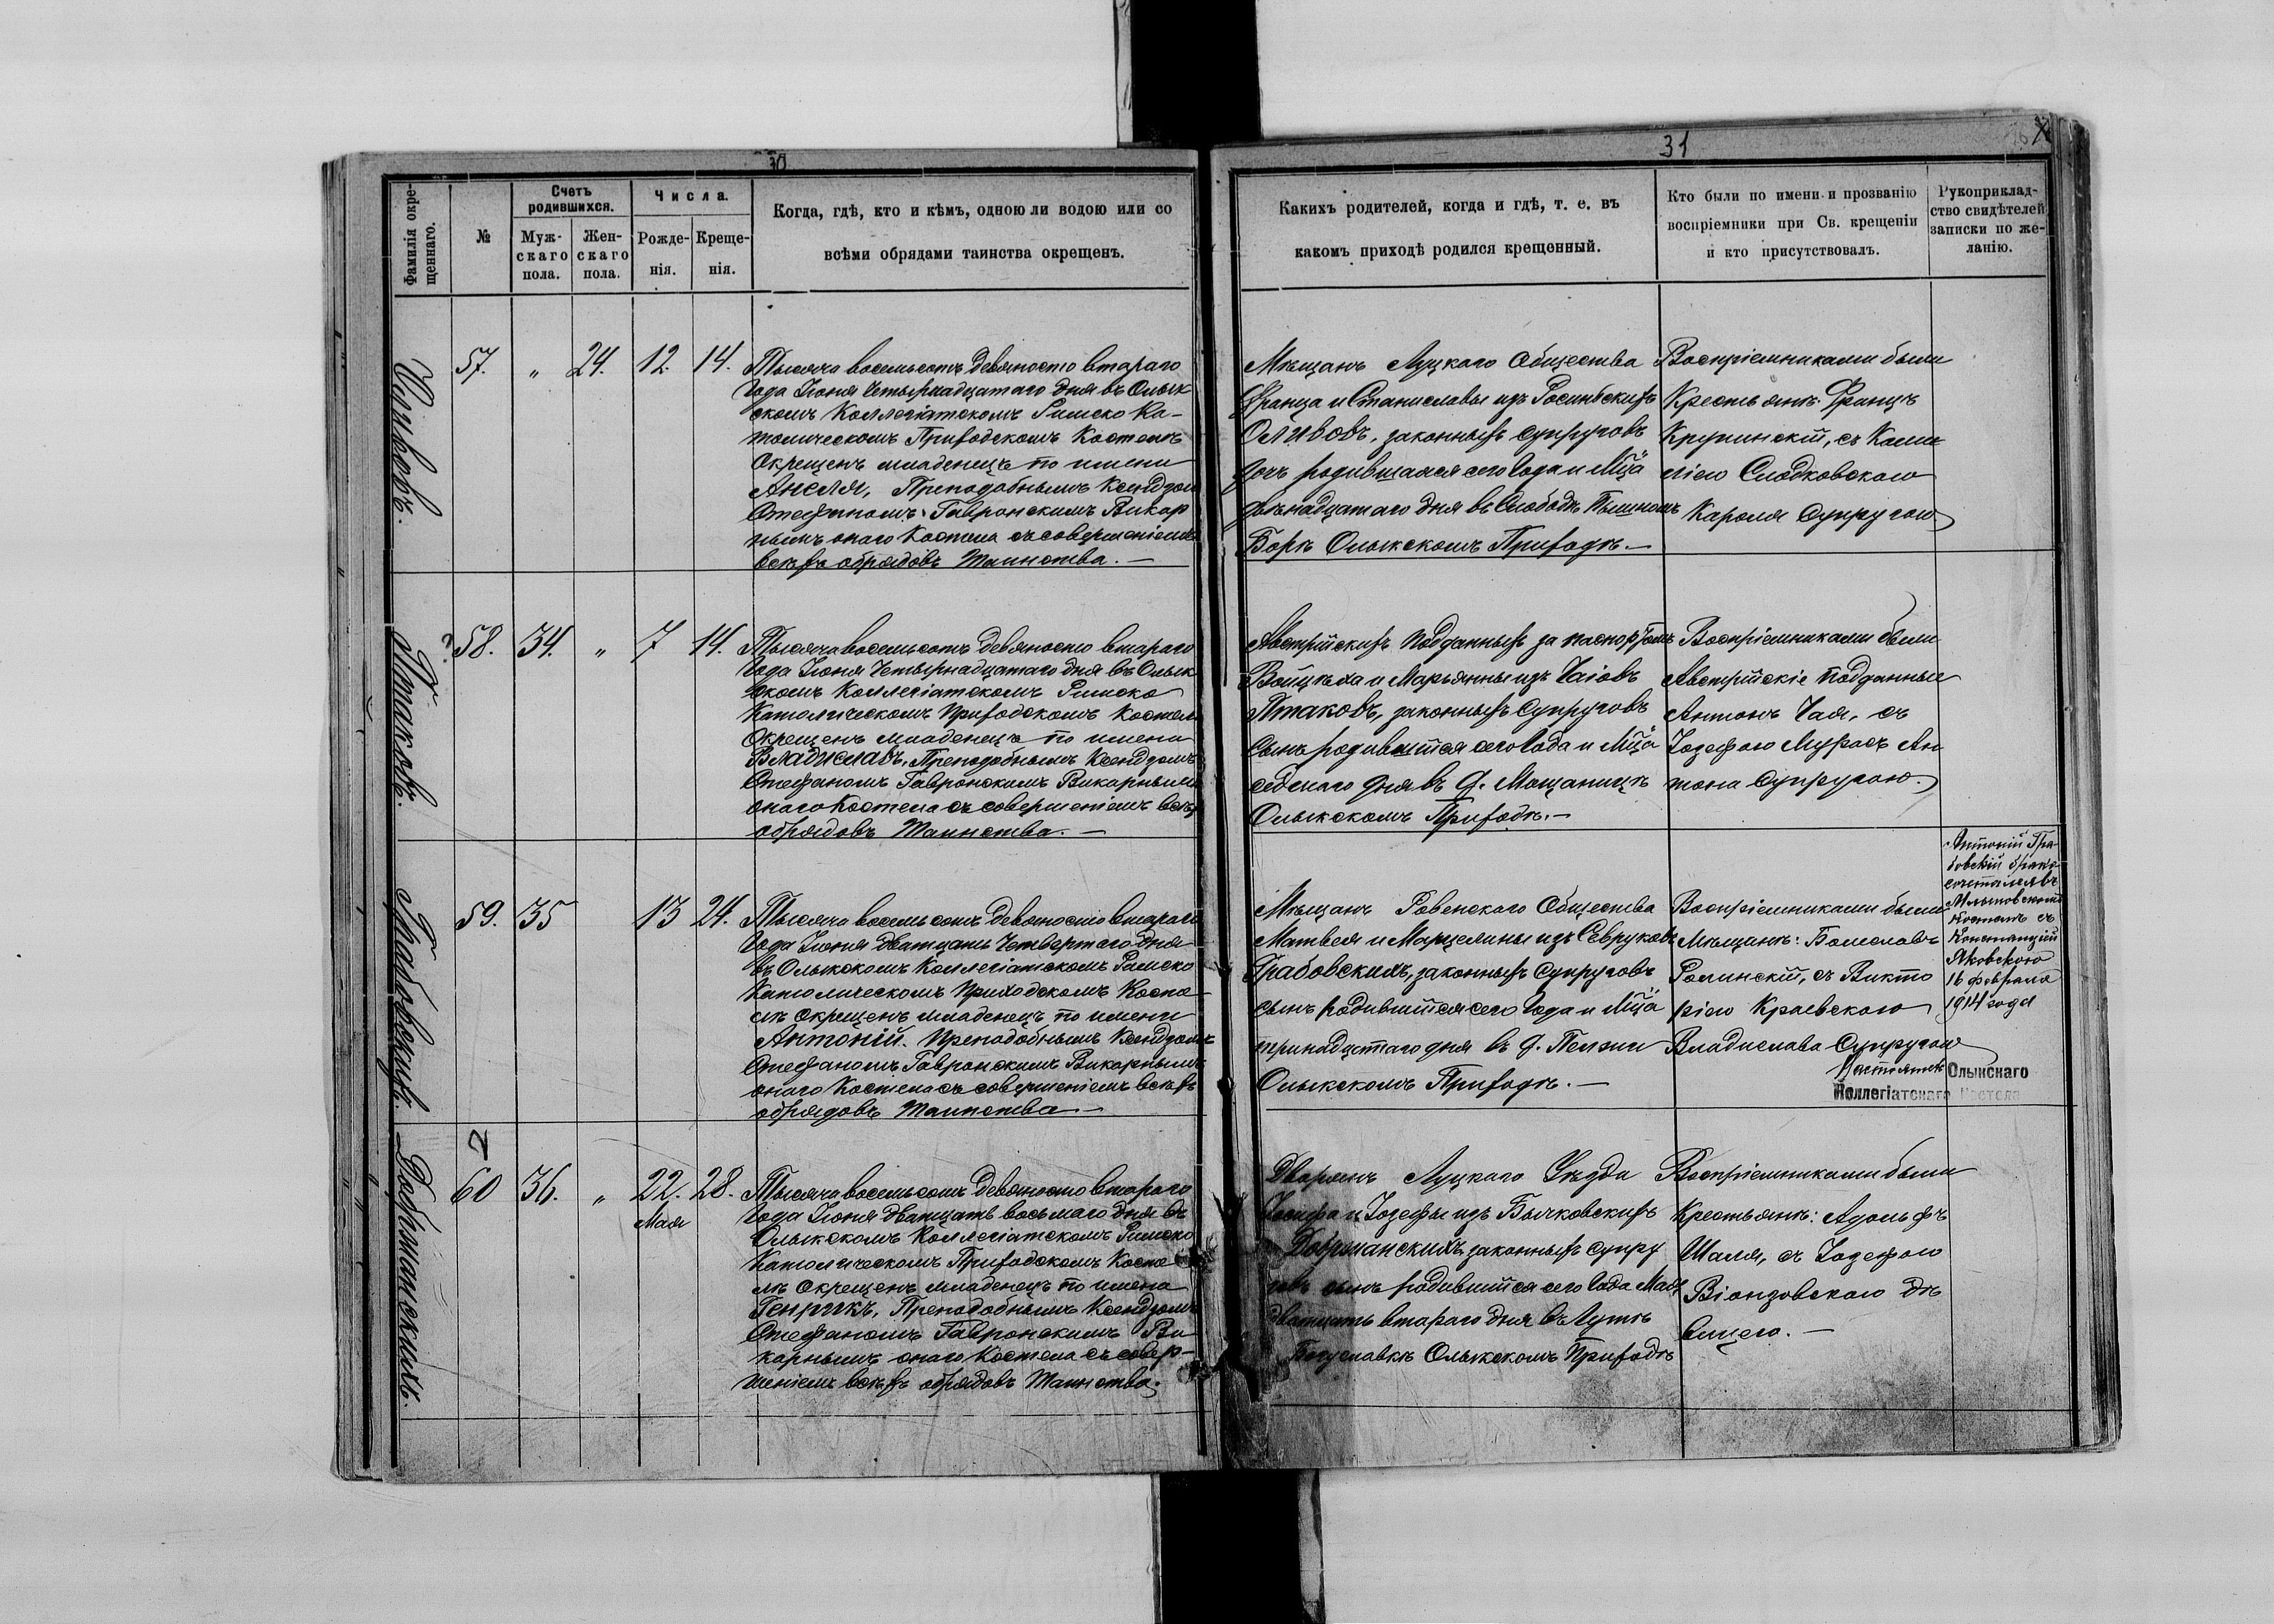 30
Фамилія окре-
щеннаго.
№
Счетъ
родившихся.
Муж-
скаго
пола.
Жен-
скаго
пола.
Числа.
Рожде-
нія.
Креще-
нія.
Когда, гдѣ, кто и кѣмъ, одною ли водою или со
всѣми обрядами таинства окрещенъ.
Оливовъ.
57.
"
24.
12.
14.
Тысяча восемьсотъ девяносто втараго
года Іюня Четырнадцатаго дня въ Олык
скомъ Коллегіатскомъ Римско Ка-
толическомъ Приходскомъ Костелѣ
Окрещенъ младенецъ по имени
Анеля, Преподобнымъ Ксендзом
Стефаномъ Гавронскимъ Викар
нымъ онаго Костела съ совершеніемъ
всѣхъ обрядовъ Таинства. —
Птаковъ.
?
58.
34.
"
7
14.
Тысяча восемьсотъ девяносто втараго
года Іюня Четырнадцатаго дня въ Олык
скомъ Коллегіатскомъ Римско
Католическомъ Приходскомъ Костел
Окрещенъ младенецъ по имени
Владиславъ, Преподобнымъ Ксендзомъ
Стефаномъ Гавронскимъ Викарнымъ
онаго Костела съ совершеніемъ всѣхъ
обрядовъ Таинства. —
Грабовскихъ.
59.
35
13
24.
Тысяча восемьсотъ девяносто втараго
года Іюня двадцать Четвертаго дня
въ Олыкскомъ Коллегіатскомъ Римско
Католическомъ Приходскомъ Косте
лѣ Окрещенъ младенецъ по имени
Антоній. Преподобнымъ Ксендзомъ
Стефаномъ Гавронскимъ Викарнымъ
онаго Костела съ совершеніемъ всѣхъ
обрядовъ Таинства —
Добрманскихъ.
2
60
36.
"
22.
Мая
28.
Тысяча восемьсотъ девяносто втараго
года Іюня двадцать восьмаго дня въ
Олыкскомъ Коллегіатскомъ Римско
Католическомъ Приходскомъ Косте
лѣ Окрещенъ младенецъ по имени
Генрикъ, Преподобнымъ Ксендзомъ
Стефаномъ Гавронскимъ Ви
карнымъ онаго Костела съ совер-
шеніемъ всѣхъ обрядовъ Таинства.
31
Какихъ родителей, когда и гдѣ, т. е. въ
какомъ приходѣ родился крещенный.
Кто были по имени и прозванію
воспріемники при Св. крещеніи
и кто присутствовалъ.
Рукоприклад-
ство свидѣтелей
записки по же-
ланію.
Мѣщанъ Луцкаго Общества
Франца и Станиславы изъ
Оливовъ, законныхъ супруговъ
дочь родившаяся сего года и Мца
двѣнадцатаго дня въ Слободѣ
Боркъ Олыкскомъ Приходѣ. —
Воспріемниками были
Крестьянѣ: Францъ
Крупинскій, съ Ками
ліею Сладковскаго
Кароля Супругою
Австрійскихъ Подданныхъ за паспортомъ
Войцѣха и Марьянны изъ Чаіовъ
Птаковъ, законныхъ Супруговъ
Сынъ родившійся сего года и Мца
седмаго дня въ д. Мощаницѣ
Олыкскомъ Приходѣ. —
Воспріемниками были
Австрійскіе Подданные
Антонъ Чая, съ
Іозефою Мурасъ Ан
тона Супругою.
Мѣщанъ Ровенскаго Общества
Матвея и Марцелины изъ Севруковъ
Грабовскихъ, законныхъ Супруговъ
сынъ родившійся сего года и Мца
тринадцатаго дня въ д. Пелжи
Олыкскомъ Приходѣ. —
Воспріемниками были
Мѣщанѣ: Болеславъ
Ролинскій, съ Викто
ріею Краевскаго
Владислава Супругою
Антоній Гра-
бовскій брако-
сочетался въ
Млыновскомъ
Костелѣ съ
Констанціей
Яковскою
16 февраля
1914 года
Настоятель Олыкскаго
Коллегіатскаго Костела
Дворянъ Луцкаго Уѣзда
Іосифа и Іозефы изъ Бычковскихъ
Добрманскихъ законныхъ супру
говъ сынъ родившійся сего года Мая
двадцать втараго дня въ
Богуславкѣ Олыкскомъ Приходѣ
Воспріемниками были
Крестьянѣ: Адольфъ
Шаля, съ Іозефою
Віонзовскаго дѣ
вицею. —